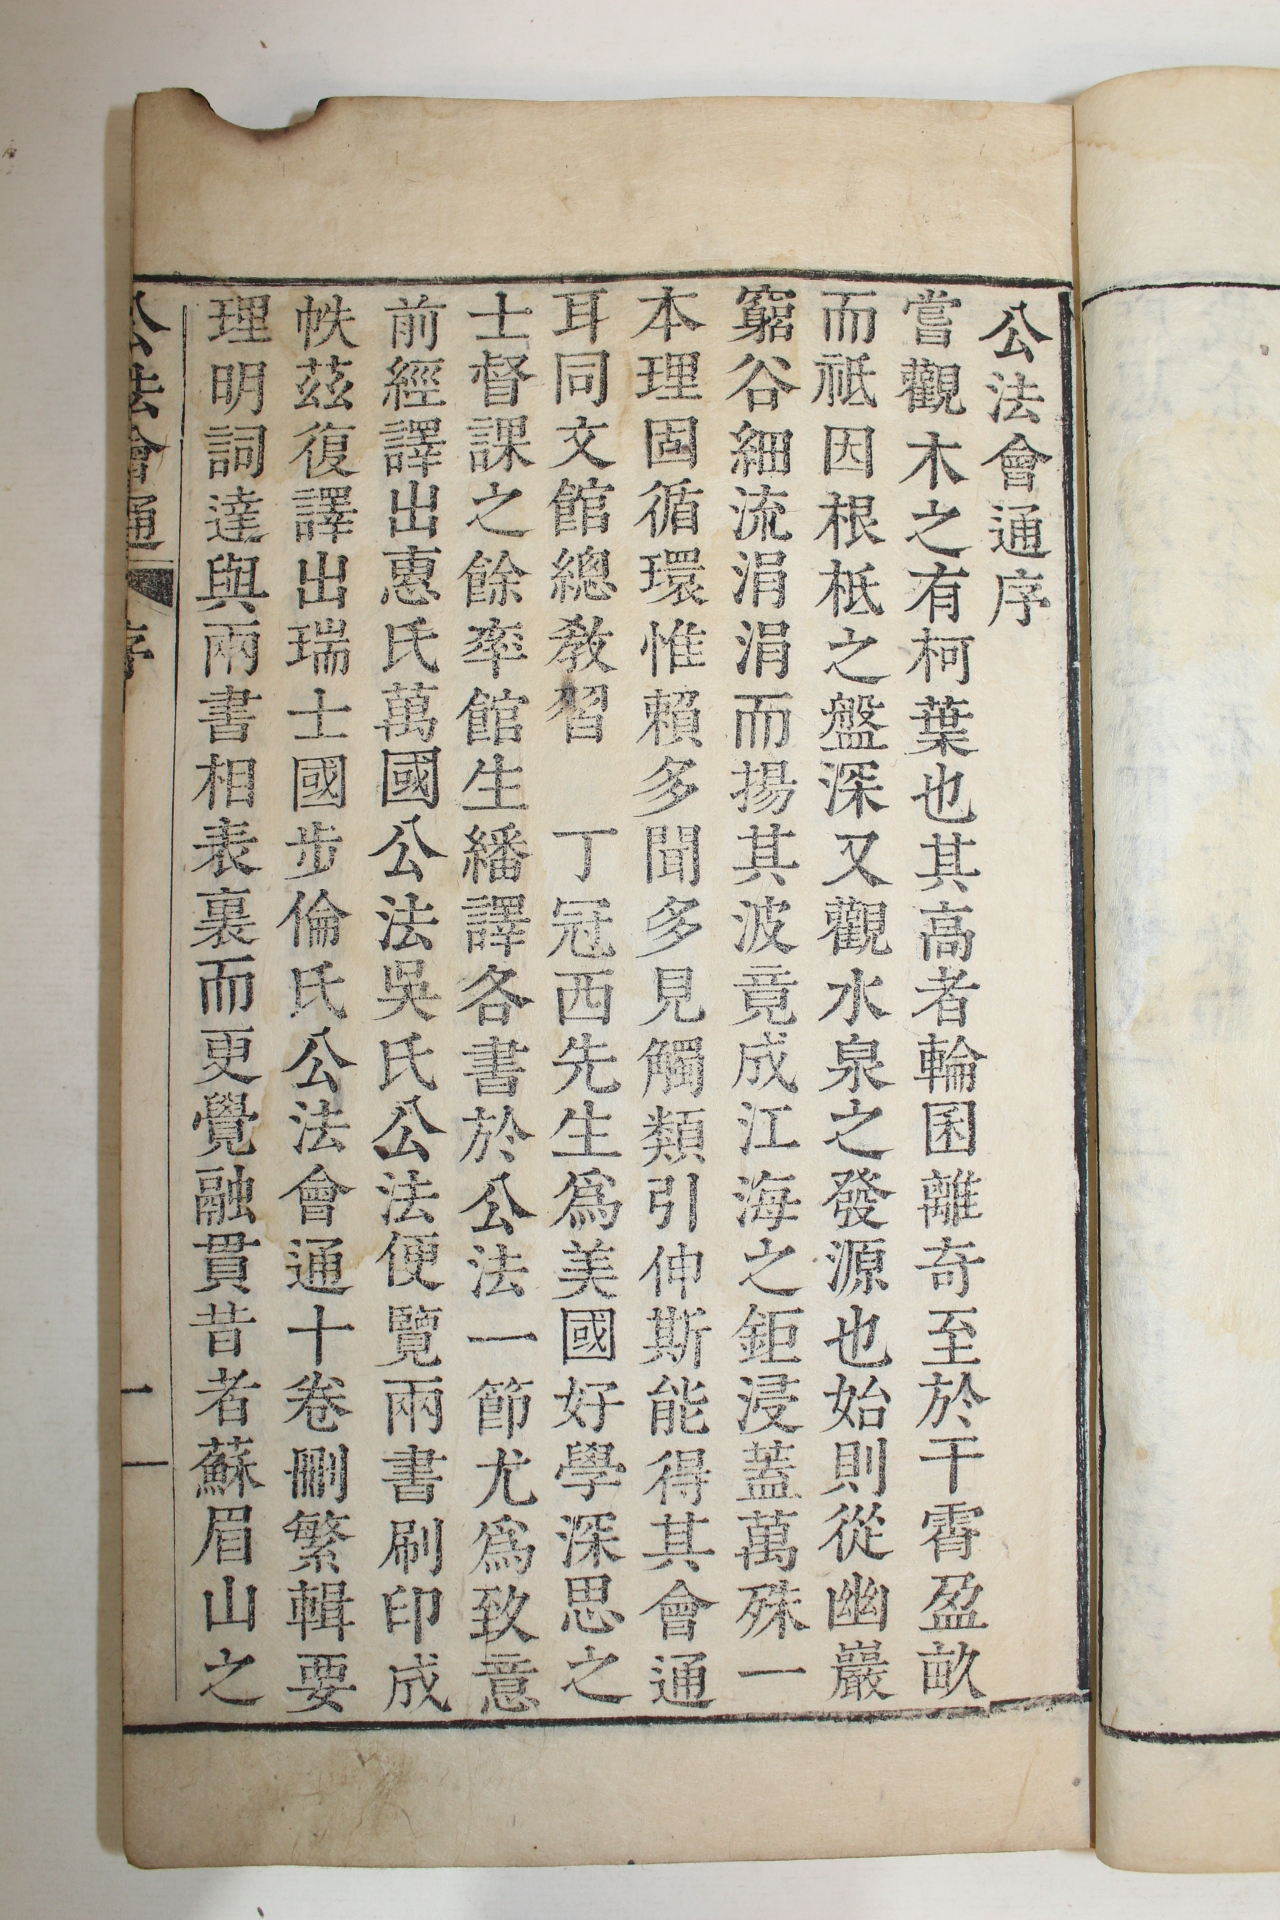 公法會通序
嘗觀木之有柯葉也其高者輪囷離奇至於干霄盈畝
而祗因根柢之盤深又觀水泉之發源也始則從幽巖
窮谷細流涓涓而揚其波竟成江海之鉅浸蓋萬殊一
本理固循環惟賴多聞多見觸類引伸斯能得其會通
耳同文館總敎習　丁冠西先生爲美國好學深思之
士督課之餘率館生繙譯各書於公法一節尤爲致意
前經譯出惠氏萬國公法吳氏公法便覽兩書刷印成
帙茲復譯出瑞士國步倫氏公法會通十卷刪繁輯要
理明詞達與兩書相表裏而更覺融貫昔者蘇眉山之
公法會通 序 一